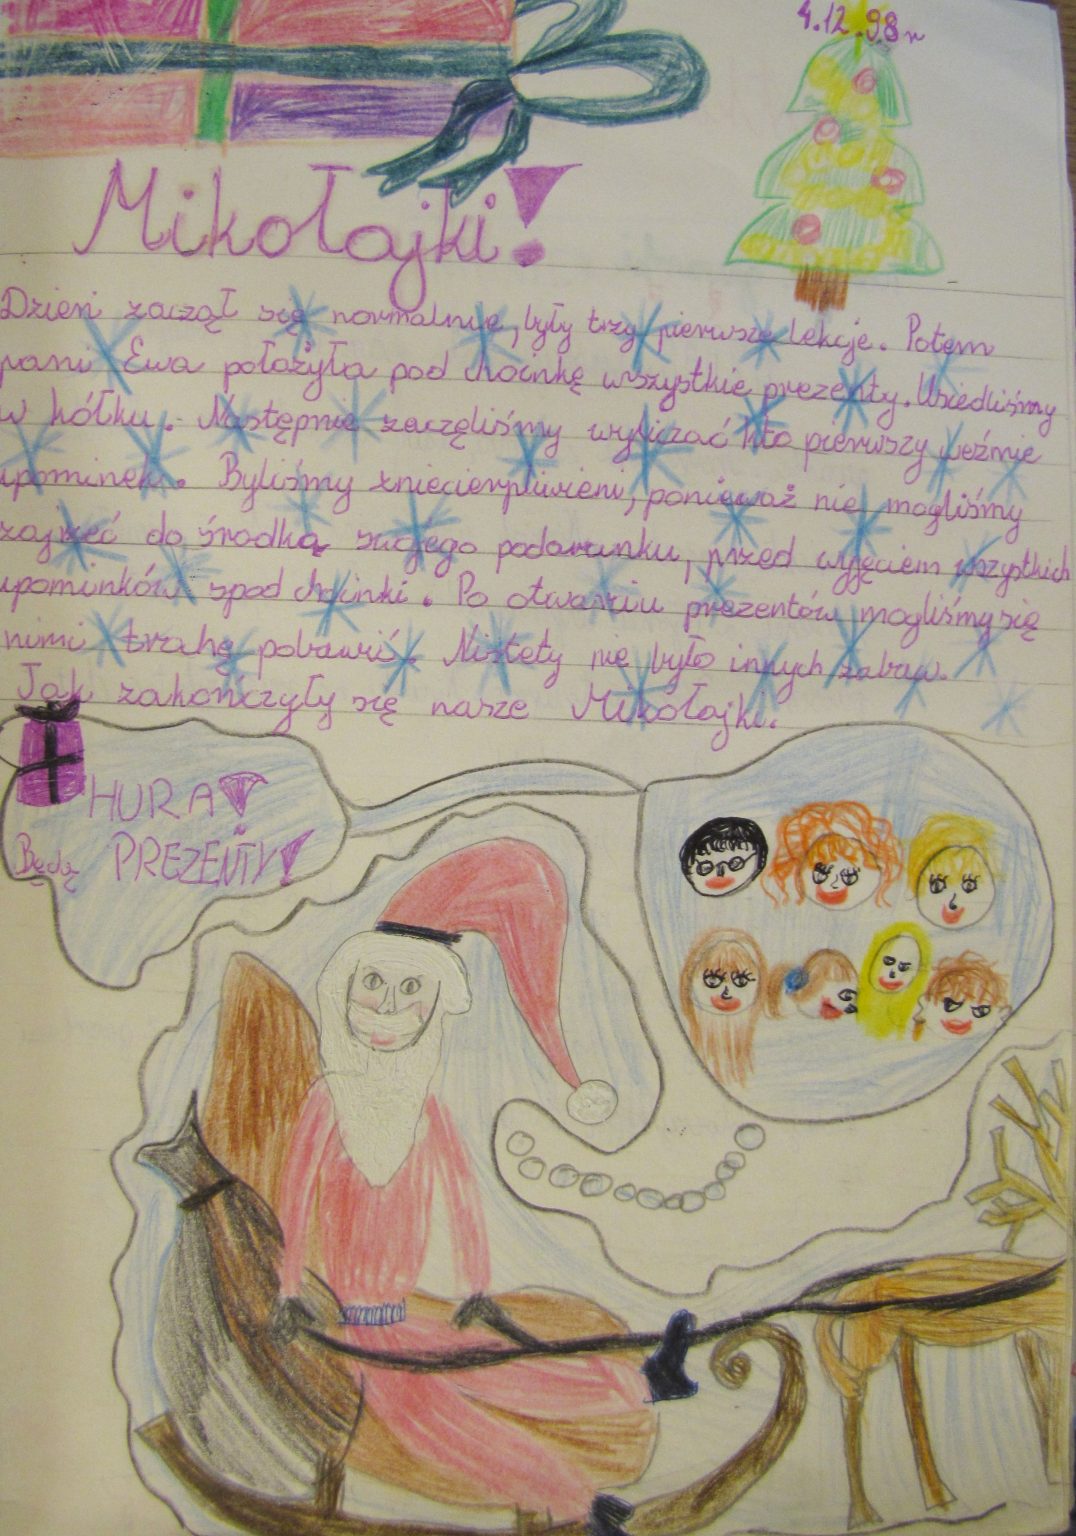 4.12.98r
Mikołajki!
Dzień zaczął się normalnie, były trzy pierwsze lekcje. Potem
pani Ewa położyła pod choinkę wszystkie prezenty. Usiedliśmy
w kółku. Następnie zaczęliśmy wyliczać kto pierwszy weźmie
upominek. Byliśmy zniecierpliwieni, ponieważ nie mogliśmy
zajrzeć do środka swojego podarunku, przed wyjęciem wszystkich
upominków spod choinki. Po otwarciu prezentów mogliśmy się
nimi trohę pobawić. Nistety nie było innych zabaw.
Jak zakończyły się nasze Mikołajki.
HURA!
Będą PREZENTY!